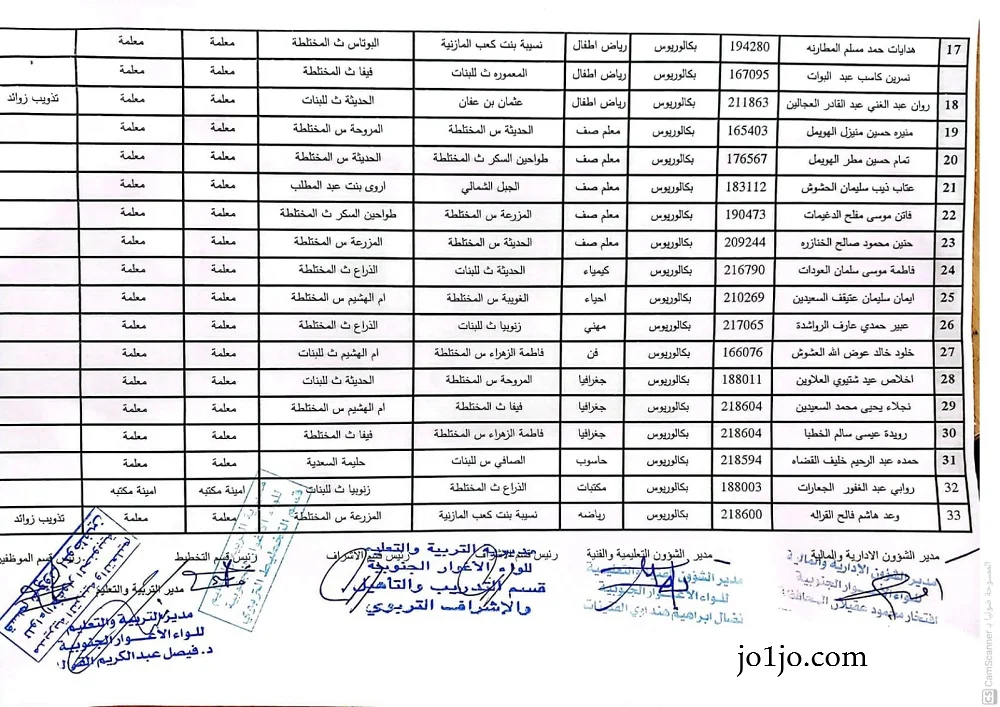 17 هدايات حمد مسلم المطارنه 194280 بكالوريوس رياض اطفال نسيبة بنت كعب المازنية البوتاس ث المختلطة معلمة معلمة
نسرين كاسب عبد البوات 167095 بكالوريوس رياض اطفال المعموره ث للبنات فيفا ث المختلطة معلمة معلمة
18 روان عبد الغني عبد القادر العجالين 211863 بكالوريوس رياض اطفال عثمان بن عفان الحديثة ث للبنات معلمة معلمة تذويب زوائد
19 منيره حسين منيزل الهويمل 165403 بكالوريوس معلم صف الحديثة س المختلطة المروحة س المختلطة معلمة معلمة
20 تمام حسين مطر الهويمل 176567 بكالوريوس معلم صف طواحين السكر ث المختلطة الحديثة س المختلطة معلمة معلمة
21 عتاب ذيب سليمان الحشوش 183112 بكالوريوس معلم صف الجبل الشمالي اروى بنت عبد المطلب معلمة معلمة
22 فاتن موسى مفلح الدغيمات 190473 بكالوريوس معلم صف المزرعة س المختلطة طواحين السكر ث المختلطة معلمة معلمة
23 حنين محمود صالح الخنازره 209244 بكالوريوس معلم صف الحديثة س المختلطة المزرعة س المختلطة معلمة معلمة
24 فاطمة موسى سلمان العودات 216790 بكالوريوس كيمياء الحديثة ث للبنات الذراع ث المختلطة معلمة معلمة
25 ايمان سليمان عتيقف السعيدين 210269 بكالوريوس احياء الغويبة س المختلطة ام الهشيم س المختلطة معلمة معلمة
26 عبير حمدي عارف الرواشدة 217065 بكالوريوس مهني زنوبيا ث للبنات الذراع ث المختلطة معلمة معلمة
27 خلود خالد عوض الله العشوش 166076 بكالوريوس فن فاطمة الزهراء س المختلطة ام الهشيم ث للبنات معلمة معلمة
28 اخلاص عيد شتيوي العلاوين 188011 بكالوريوس جغرافيا المروحة س المختلطة الحديثة ث للبنات معلمة معلمة
29 نجلاء يحيى محمد السعيدين 218604 بكالوريوس جغرافيا فيفا ث المختلطة ام الهشيم س المختلطة معلمة معلمة
30 رويدة عيسى سالم الخطبا 218604 بكالوريوس جغرافيا فاطمة الزهراء س المختلطة فيفا ث المختلطة معلمة معلمة
31 حمده عبد الرحيم خليف القضاه 218594 بكالوريوس حاسوب الصافي س للبنات حليمة السعدية معلمة معلمة
32 روابي عبد الغفور الجعارات 188003 بكالوريوس مكتبات الذراع ث المختلطة زنوبيا ث للبنات امينة مكتبه امينة مكتبه
33 وعد هاشم فالح القراله 218600 بكالوريوس رياضه نسيبة بنت كعب المازنية المزرعة س المختلطة معلمة معلمة تذويب زوائد
مدير الشؤون الادارية والمالية مدير الشؤون التعليمية والفنية رئيس قسم الاشراف رئيس قسم التخطيط رئيس قسم الموظفين
مدير التربية والتعليم
مدير الشؤون الادارية والمالية
للواء الأغوار الجنوبية
افتخار محمود عقيلان المحافظة
مدير الشؤون الفنية والتعليمية
للواء الأغوار الجنوبية
نضال ابراهيم هنداوي
مديرية التربية والتعليم
للواء الأغوار الجنوبية
قسم التدريب والتأهيل
والإشراف التربوي
مدير التربية والتعليم
للواء الأغوار الجنوبية
د. فيصل عبدالكريم
jo1jo.com
CS CamScanner الممسوحة ضوئيا بـ